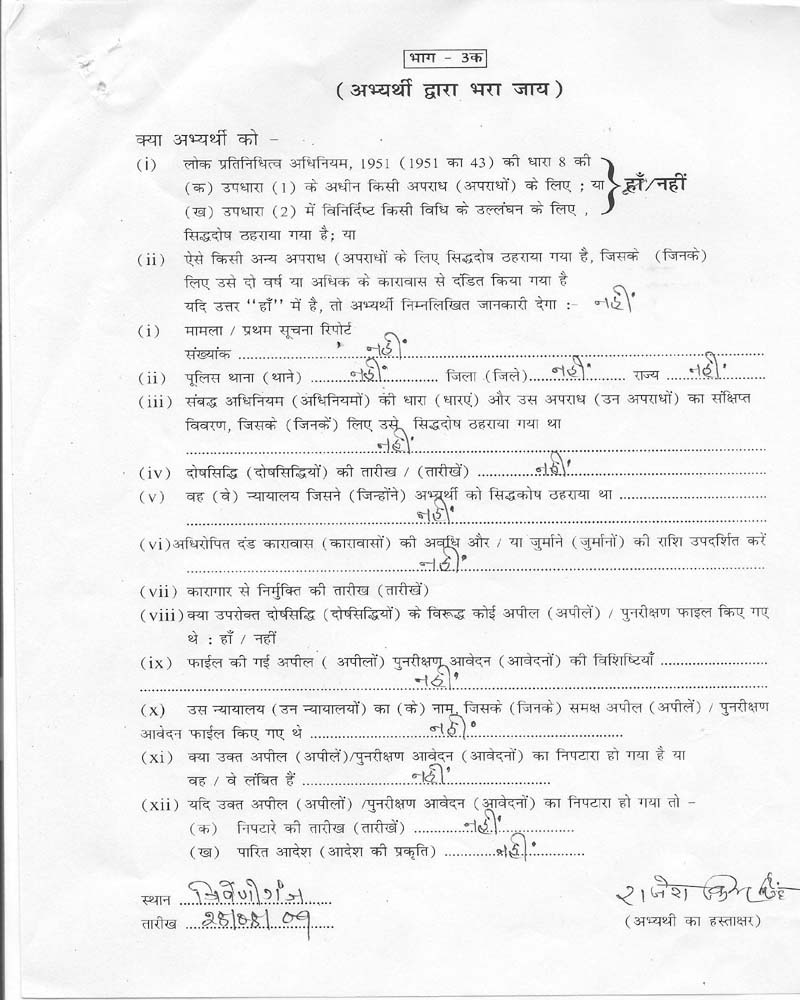 भाग - 3क
( अभ्यर्थी द्वारा भरा जाय )
क्या अभ्यर्थी को -
(i) लोक प्रतिनिधित्व अधिनियम, 1951 (1951 का 43) की धारा 8 की
(क) उपधारा (1) के अधीन किसी अपराध (अपराधों) के लिए ; या
(ख) उपधारा (2) में विनिर्दिष्ट किसी विधि के उल्लंघन के लिए ,
हाँ/नहीं
सिद्धदोष ठहराया गया है; या
(ii) ऐसे किसी अन्य अपराध (अपराधों के लिए सिद्धदोष ठहराया गया है, जिसके (जिनके)
लिए उसे दो वर्ष या अधिक के कारावास से दंडित किया गया है
यदि उत्तर "हाँ" में है, तो अभ्यर्थी निम्नलिखित जानकारी देगा :- नहीं
(i) मामला / प्रथम सूचना रिपोर्ट
संख्यांक नहीं
(ii) पूलिस थाना (थाने) नहीं जिला (जिले) नहीं राज्य नहीं
(iii) संबद्ध अधिनियम (अधिनियमों) की धारा (धारएं) और उस अपराध (उन अपराधों) का संक्षिप्त
विवरण, जिसके (जिनकें) लिए उसे सिद्धदोष ठहराया गया था
नहीं
(iv) दोषसिद्धि (दोषसिद्धियों) की तारीख / (तारीखें) नहीं
(v) वह (वे) न्यायालय जिसने (जिन्होंने) अभ्यर्थी को सिद्धकोष ठहराया था
नहीं
(vi) अधिरोपित दंड कारावास (कारावासों) की अवधि और / या जुर्माने (जुर्मानों) की राशि उपदर्शित करें
नहीं
(vii) कारागार से निर्मुक्ति की तारीख (तारीखें)
(viii) क्या उपरोक्त दोर्षसिद्धि (दोर्षसिद्धियों) के विरूद्ध कोई अपील (अपीलें) / पुनरीक्षण फाइल किए गए
थे : हाँ / नहीं
(ix) फाईल की गई अपील ( अपीलों) पुनरीक्षण आवेदन (आवेदनों) की विशिष्टियाँ
नहीं
(x) उस न्यायालय (उन न्यायालयों) का (के) नाम, जिसके (जिनके) समक्ष अपील (अपीलें) / पुनरीक्षण
आवेदन फाईल किए गए थे नहीं
(xi) क्या उक्त अपील (अपीलें)/पुनरीक्षण आवेदन (आवेदनों) का निपटारा हो गया है या
वह / वे लंबित हैं नहीं
(xii) यदि उक्त अपील (अपीलों) /पुनरीक्षण आवेदन (आवेदनों) का निपटारा हो गया तो -
(क) निपटारे की तारीख (तारीखें) नहीं
(ख) पारित आदेश (आदेश की प्रकृति) नहीं
स्थान त्रिवेणीगंज
तारीख
राजेश कुमार सिंह
(अभ्यथी का हस्ताक्षर)